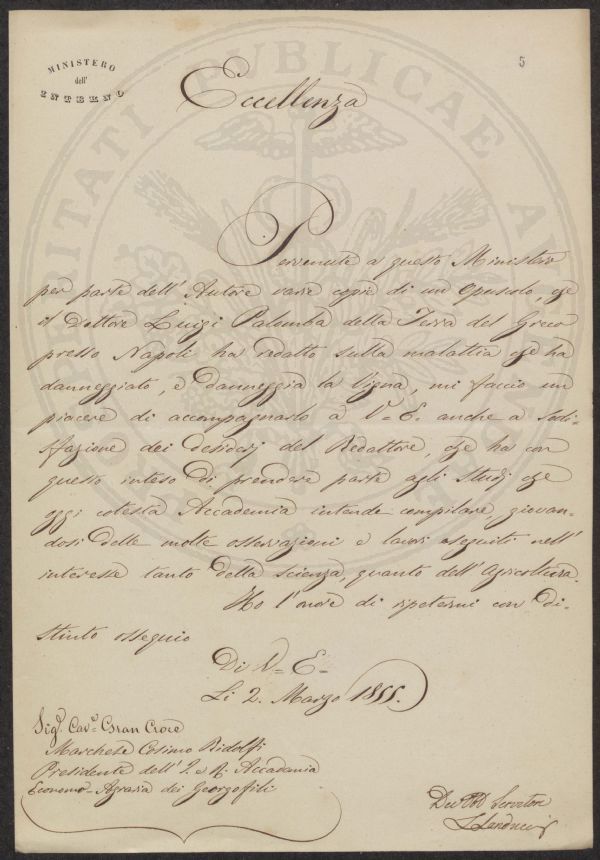 MINISTERO
dell'
INTERNO
5
Eccellenza
Pervenute a questo Ministero
per parte dell'Autore varie copie di un Opuscolo, che
il Dottore Luigi Palomba della Torre del Greco
presso Napoli ha redatto sulla malattia che ha
danneggiato, e danneggia la Vigna, mi faccio un
piacere di accompagnarlo a V. E. anche a sodi-
sfazione dei desiderj del Redattore, che ha con
questo inteso di prendere parte agli Studj che
oggi cotesta Accademia intende compilare, giovan-
dosi delle molte osservazioni e lavori eseguiti nell'
interesse tanto della scienza, quanto dell'Agricoltura.
Ho l'onore di ripetermi con di-
stinto ossequio
Di V. E.
Li 2. Marzo 1855.
Sigr. Cavre. Gran Croce
Marchese Cosimo Ridolfi
Presidente dell'I. e R. Accademia
Economo-Agraria dei Georgofili
Servitore
L. Landucci
PROSPERITATI PUBLICAE AUGENDAE